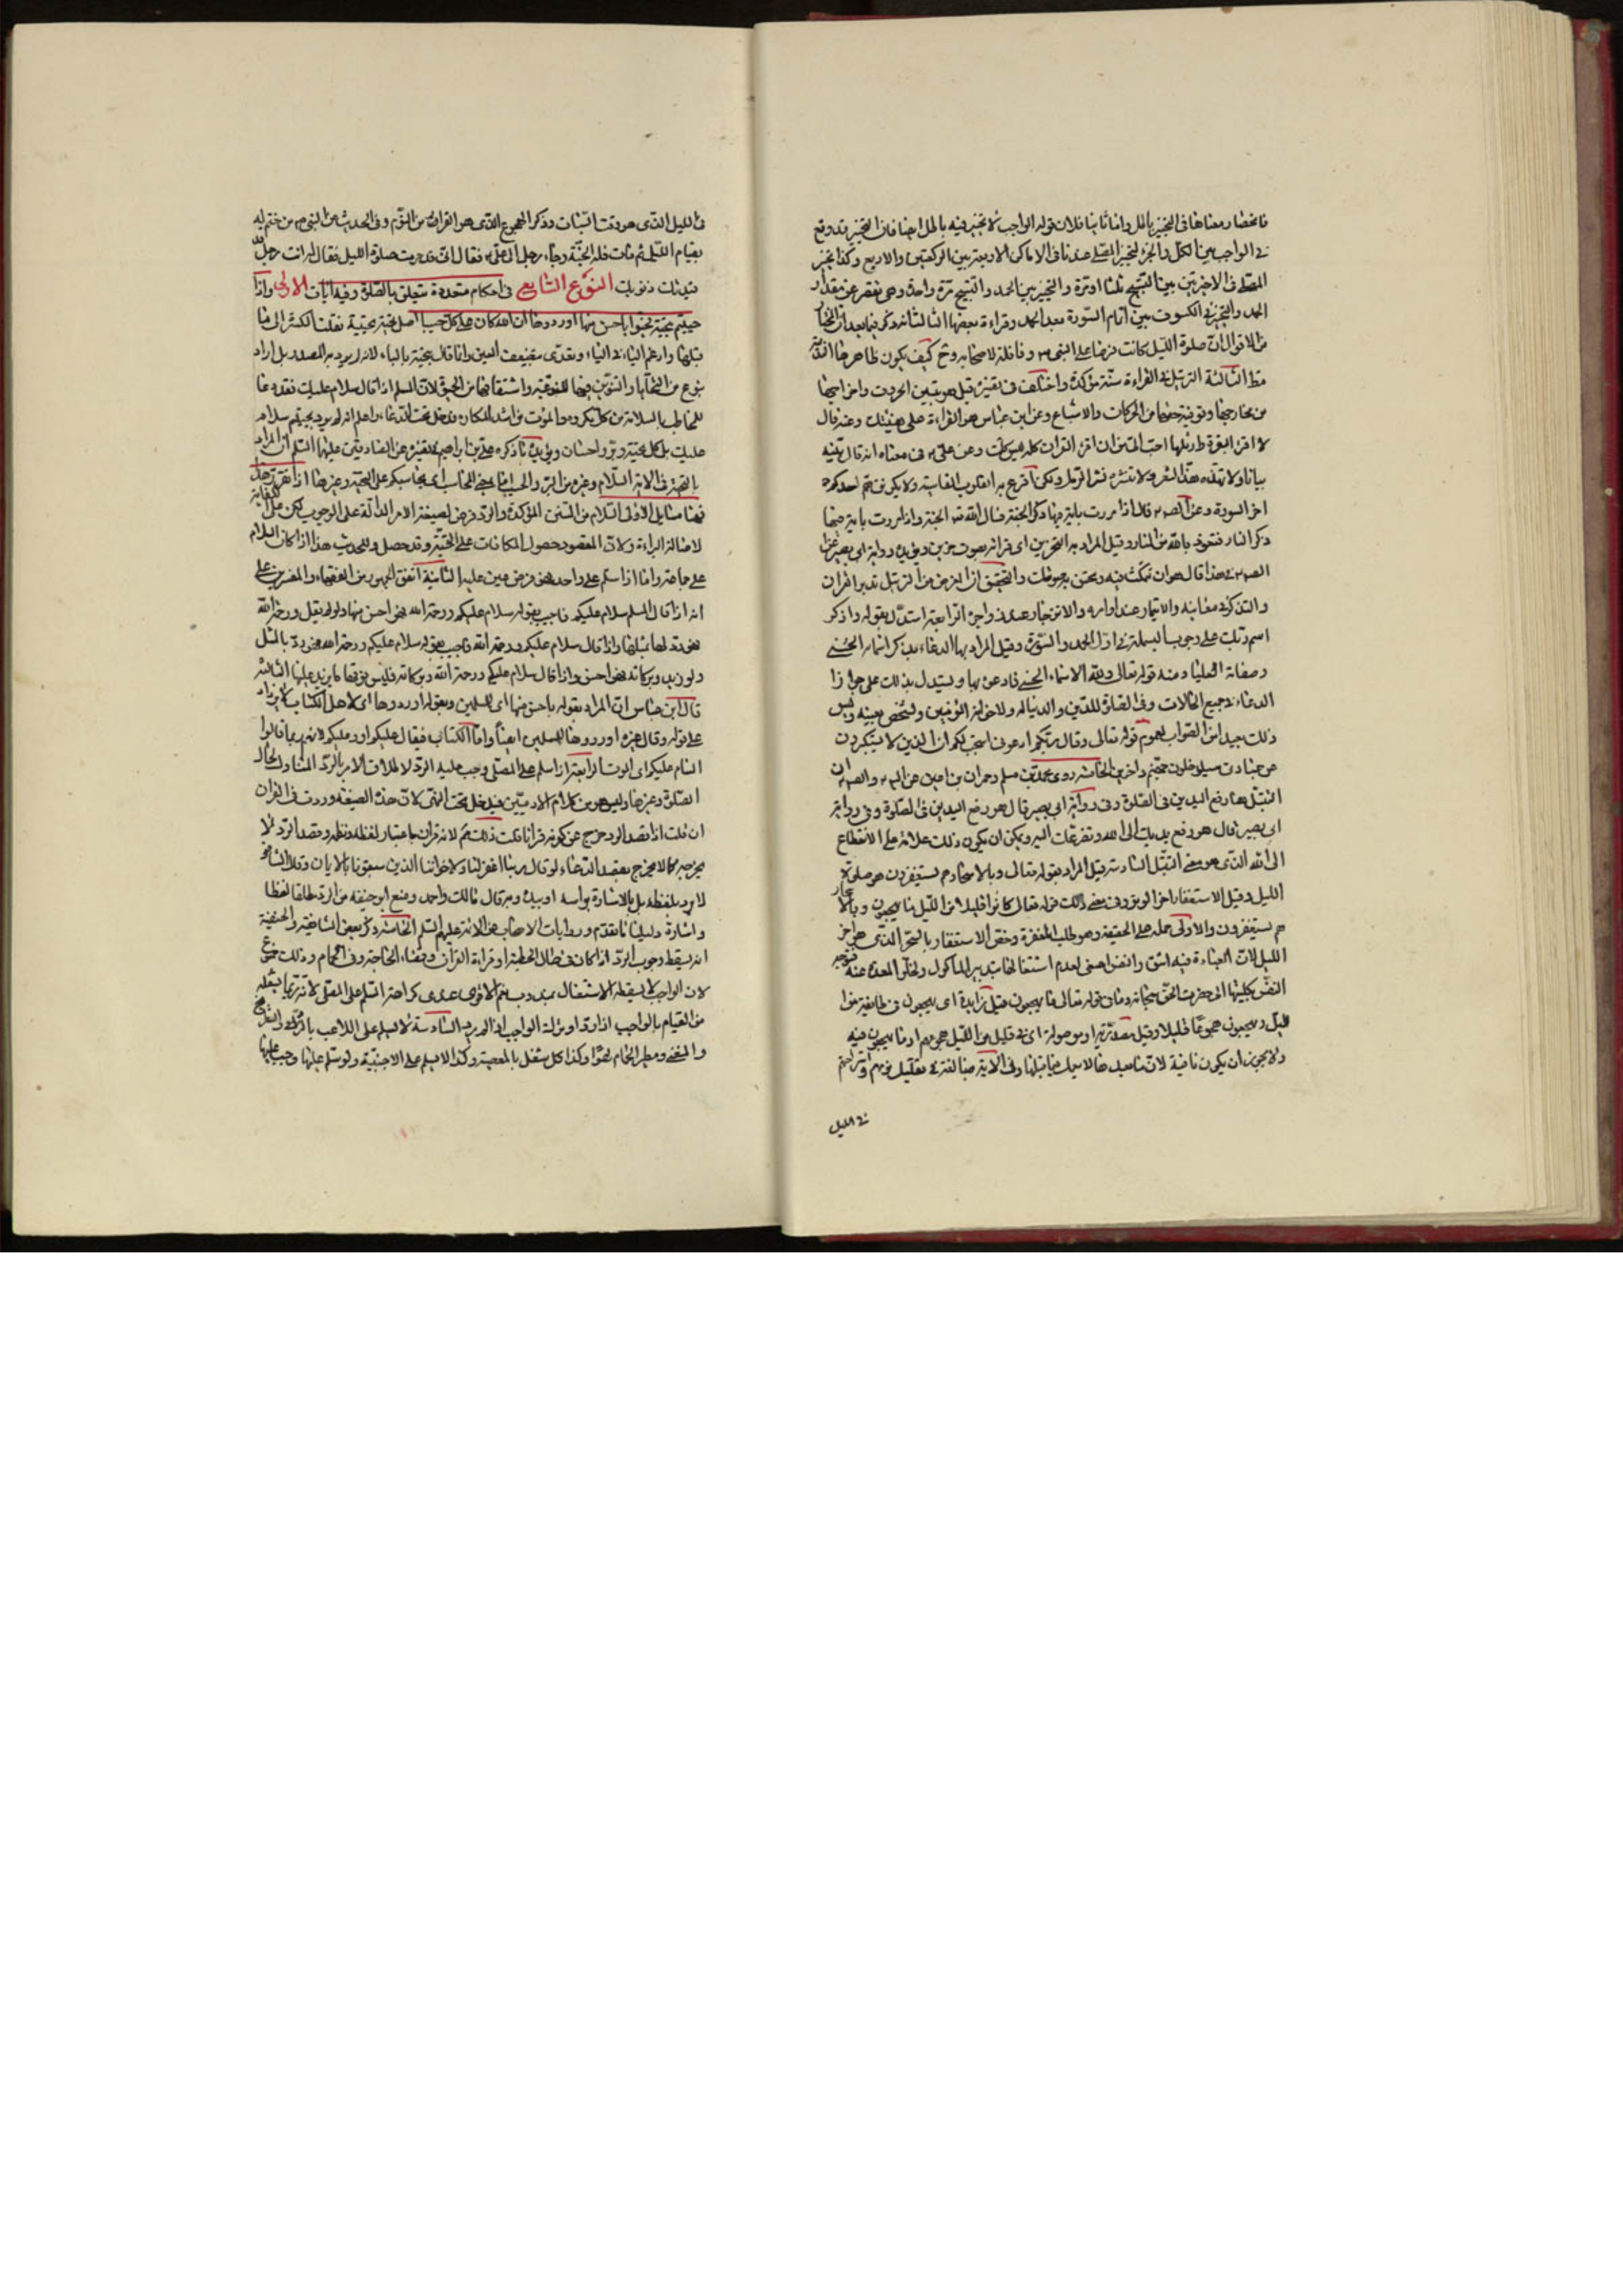 فانحصار معناها في التخيير باطل واما ثانيا فلان قوله الواجب لا تخيير فيه باطل ايضا فان التخيير قد وقع
في الواجب بين الكل والجزء لتخيير المصلي عندنا في الاماكن الاربعة بين الركعتين والاربع وكذا تخير
المصلي في الاخيرتين بين التسبيح ثلثا او مرة والتخيير بين الحمد والتسبيح مرة واحدة وهي تقصر عن مقدار
الحمد والتخيير في الكسوف بين اتمام السورة بعد الحمد وقراءة بعضها
من الاقوال ان صلوة الليل كانت فرضا على النبي ص ونافلة لاصحابه وح كيف يكون ظاهرها
الثالثة الترتيل في القراءة سنة مؤكدة واختلف في تفسيره قيل هو تبيين الحروف واخراجها
من مخارجها وتوفية حقها من الحركات والاشباع وعن ابن عباس هو القراءة على هينتك وعنه قال
لا اقرء البقرة ارتلها احب الى من ان اقرء القران كله وعن علي في معناه انه قال بينه
بيانا ولا تهذه هذ الشعر ولا تنثره نثر الرمل ولكن اقرع به القلوب القاسية ولا يكونن هم احدكم
اخر السورة وعن الص قال اذا مررت باية فيها ذكر الجنة فسال الله الجنة واذا مررت باية فيها
ذكر النار فتعوذ بالله من النار وقيل المراد به التحزين اي قراءة بصوت حزين ويؤيده رواية ابي بصير عن
الص في هذا قال هو ان تمكث فيه وتحسن به صوتك والتحقيق ان الغرض من الترتيل تدبر القران
والتفكر في معانيه والايتمار عند اوامره والانزجار عند زواجره الرابعة استدل بقوله واذكر
اسم ربك على وجوب البسملة في اول الحمد والسورة وقيل المراد بها الدعاء بذكر اسمائه الحسنى
وصفاته العليا ومنه قوله تعالى ولله الاسماء الحسنى فادعوه بها ويستدل بذلك على جواز
الدعاء في جميع الحالات وفي الصلوة للدين والدنيا له ولاخوانه المؤمنين ولشخص بعينه وليس
ذلك بعيدا من الصواب لعموم قوله تعالى وقال ربكم ادعوني استجب لكم ان الذين لا يستكبرون
عن عبادتي سيدخلون جهنم داخرين الخامسة روى محمد بن مسلم وحمران بن اعين عن
التبتل هنا رفع اليدين في الصلوة وفي رواية ابي بصير قال هو رفع اليدين في الصلوة وفي رواية
ابي بصير قال هو رفع يديك الى الله وتضرعك اليه ويمكن ان يكون ذلك علامة على الانقطاع
الى الله الذي هو معنى التبتل السادسة قيل المراد بقوله تعالى وبالاسحار هم يستغفرون هو صلوة
الليل وقيل الاستغفار اخر الوتر وفي معنى ذلك قوله تعالى كانوا قليلا من الليل ما يهجعون وبالاسحار
هم يستغفرون والاولى حمله على الحقيقة وهو طلب المغفرة وخص الاستغفار بالسحر الذي هو اخر
الليل لان العبادة فيه اشق والنفس اصفى لعدم اشتغالها بتدبير الماكول ولخلو المعدة عنه فتتوجه
النفس بكليتها الى حضرة الحق سبحانه وما في قوله تعالى ما يهجعون قيل زايدة اي يهجعون في طايفة من
الليل ويهجعون هجوعا قليلا وقيل مصدرية او موصولة اي في قليل من الليل هجوعهم او ما يهجعون فيه
ولا يجوز ان يكون نافية لان ما بعدها لا يعمل فيما قبلها وفي الاية مبالغة في تقليل نومهم واستراحتهم
في الليل
في الليل الذي هو وقت السبات وذكر الهجوع الذي هو الغرار من النوم وفي الحديث عن النبي ص من ختم له
بقيام الليل ثم مات فله الجنة وجاء رجل الى علي فقال اني قد حرمت صلوة الليل فقال له انت رجل
قيدتك ذنوبك النوع التاسع في احكام متعددة تتعلق بالصلوة وفيه ايات الاولى واذا
حييتم بتحية فحيوا باحسن منها او ردوها ان الله كان على كل شيء حسيبا اصل تحية تحيية نقلت الكسرة الى ما
قبلها وادغم الياء في الياء وتعدى بتضعيف العين وانما قال بتحية بالباء لانه لم يرد به المصدر بل اراد
نوع من التحايا والتنوين فيها للنوعية واشتقاقها من الحيوة لان المسلم اذا قال سلام عليك فقد دعا
للمخاطب بالسلامة من كل مكروه والموت من اشد المكاره فدخل تحت الدعاء واعلم انه لم يرد بحييتم سلام
عليك بل كل تحية وبر واحسان ويؤيده ما ذكره علي بن ابراهيم في تفسيره عن الصادقين عليهما السلم ان المراد
بالتحية في الاية السلام وغيره من البر والحسيب اما بمعنى المحاسب اي يحاسبكم على التحية وغيرها اذا تقرر هذا
فهنا مسايل الاولى السلام من السنن المؤكدة والرد فرض لصيغة الامر الدالة على الوجوب لكن على الكفاية
لاصالة البراءة ولان المقصود حصول المكافات على التحية وقد حصل وللحديث هذا اذا كان السلام
على جماعة واما اذا سلم على واحد فهو فرض عين عليه الثانية اتفق الجمهور من الفقهاء والمفسرين على
انه اذا قال المسلم سلام عليكم فاجيب بقوله سلام عليكم ورحمة الله فهو احسن منها ولو لم يقل ورحمة الله
فهو رد لها بمثلها واذا قال سلام عليكم ورحمة الله فاجيب بقوله سلام عليكم ورحمة الله فهو رد بالمثل
ولو زيد وبركاته فهو احسن واذا قال سلام عليكم ورحمة الله وبركاته فليس فوقها ما يزيد عليها الثالثة
قال ابن عباس ان المراد بقوله باحسن منها اي للمسلمين وبقوله او ردوها اي لاهل الكتاب لا يزاد
على قوله وقال غيره او ردوها للمسلمين ايضا واما الكتاب فيقال عليكم او وعليكم لانهم ربما قالوا
السام عليكم اي الموت الرابعة اذا سلم على المصلي وجب عليه الرد لاطلاق الامر بالرد المتناول لحال
الصلوة وغيرها وليس هو من كلام الادميين فيدخل تحت النهي لان هذه الصيغة وردت في القران
ان قلت اذا قصد الرد خرج عن كونه قرانا قلت ذلك مم لانه قران باعتبار لفظه ونظمه وقصد الرد لا
يخرجه كما لا يخرج بقصد الدعاء لو قال ربنا اغفر لنا ولاخواننا الذين سبقونا بالايمان وقال الشافعي
لا يرد بلفظه بل بالاشارة براسه او بيده وبه قال مالك واحمد ومنع ابو حنيفة من الرد مطلقا لفظا
واشارة دليلنا ما تقدم وروايات الاصحاب عن الائمة عليهم السلم الخامسة ذكر بعض الشافعية والحنفية
انه يسقط وجوب الرد اذا كان في حال الخطبة او قراءة القران وقضاء الحاجة وفي الحمام وذلك ممنوع
لان الواجب لا يسقطه الاشتغال بمندوب نعم الاقوى عندي كراهة السلم على المصلي لانه ربما يشغله
من القيام بالواجب اذا رد او ترك الواجب اذا لم يرد السادسة لا يسلم على اللاعب بالنرد والشطرنج
والمغني ومطير الحمام لهوا وكذا كل مشتغل بالمعصية وكذا لا يسلم على الاجنبية ولو سلم عليها وجب عليها